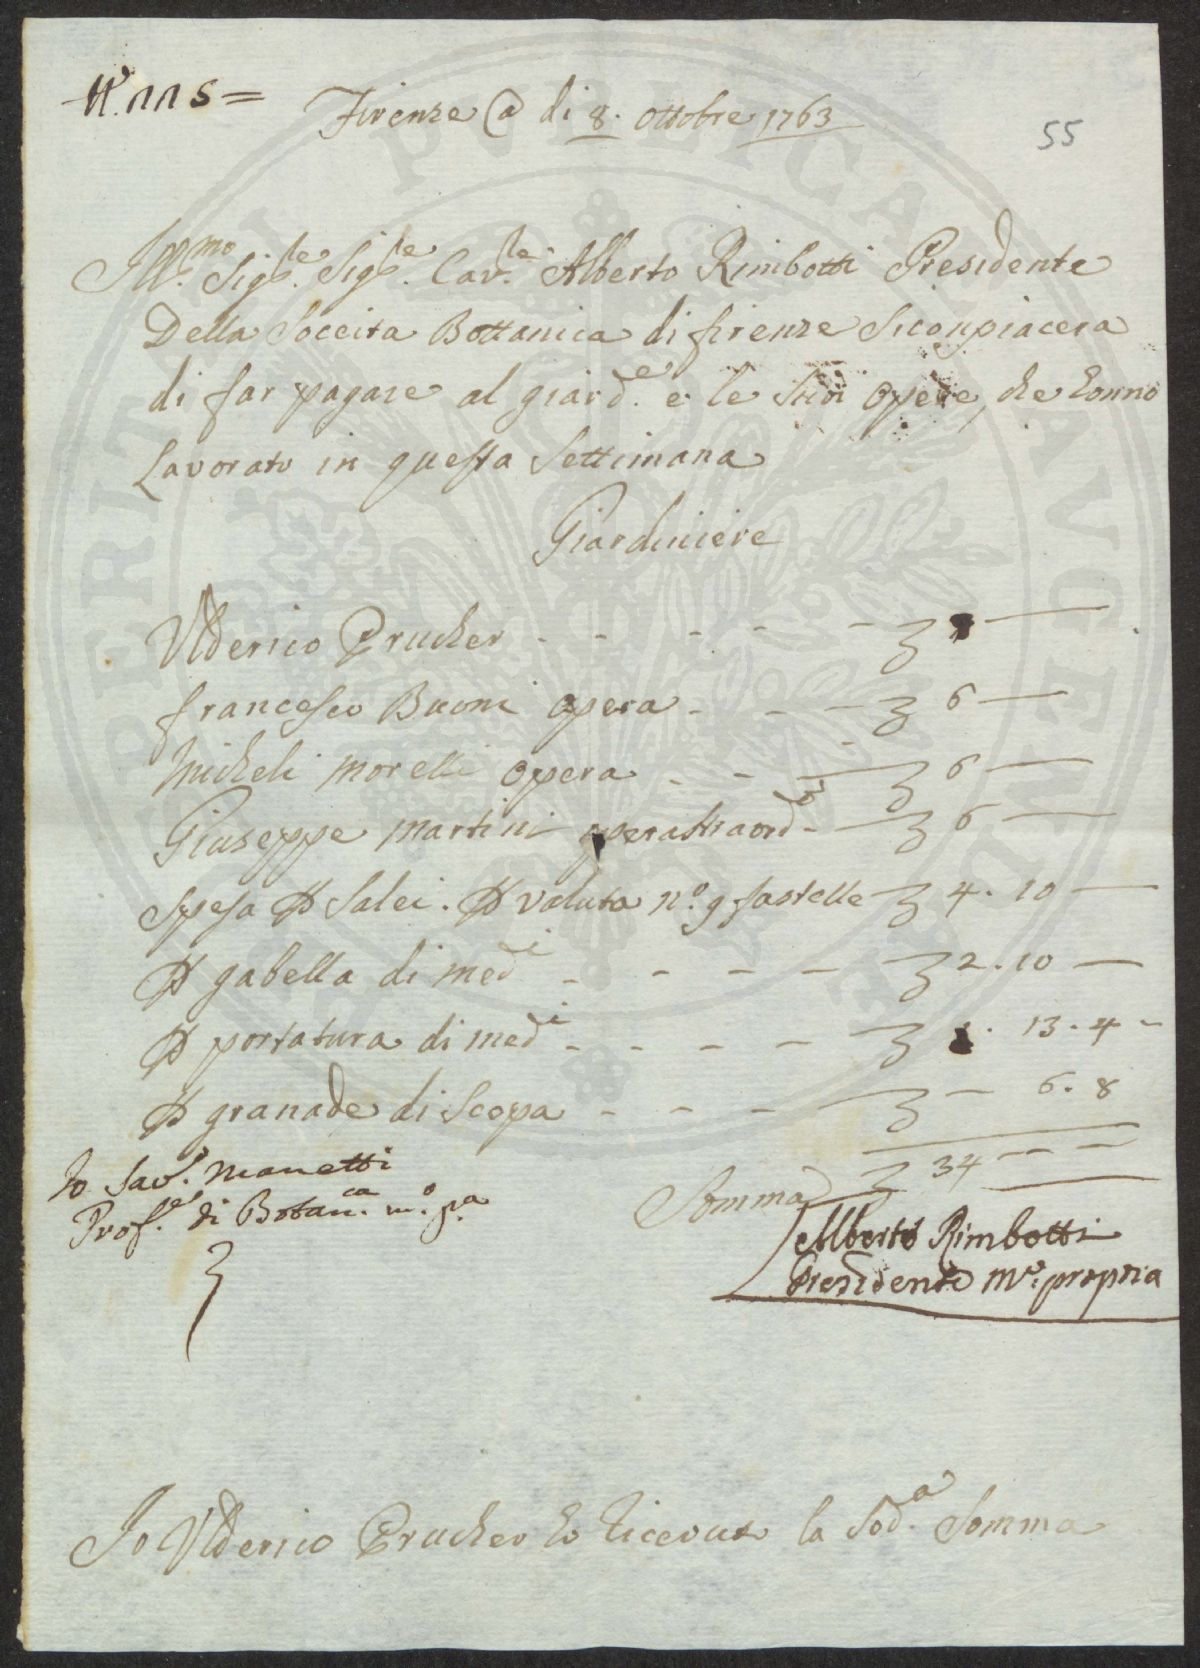 N.° 115 =
Firenze @ di 8. Ottobre 1763
55
Ill.mo Sig.re Sig.re Cav.re Alberto Rimbotti Presidente
Della Socceita Bottanica di firenze Siconpiacera
di far pagare al giard.e e le Sue opere, che honno
Lavorato in questa Settimana
Giardiniere
Ulderico Prucher - - - - -
francesco Buoni opera - - - 6 —
Micheli morelli opera - - 6 —
Giuseppe martini opera straord.a - 6 —
Spesa P Salci. P valuta n.° 9 fastelle 4. 10 —
P gabella di med.i - - - - 2. 10 —
P portatura di med.i - - - - . 13. 4 -
P granade di Scopa - - - — 6. 8
Somma 34 — —
Io Sav.o Manetti
Prof.e di Botan.ca m.o p.a
Alberto Rimbotti
Presidente m.o propria
Io Ulderico Prucher ho Riceuto la Sod.a Somma
PERITAE PVBLICAE AVGENDAE